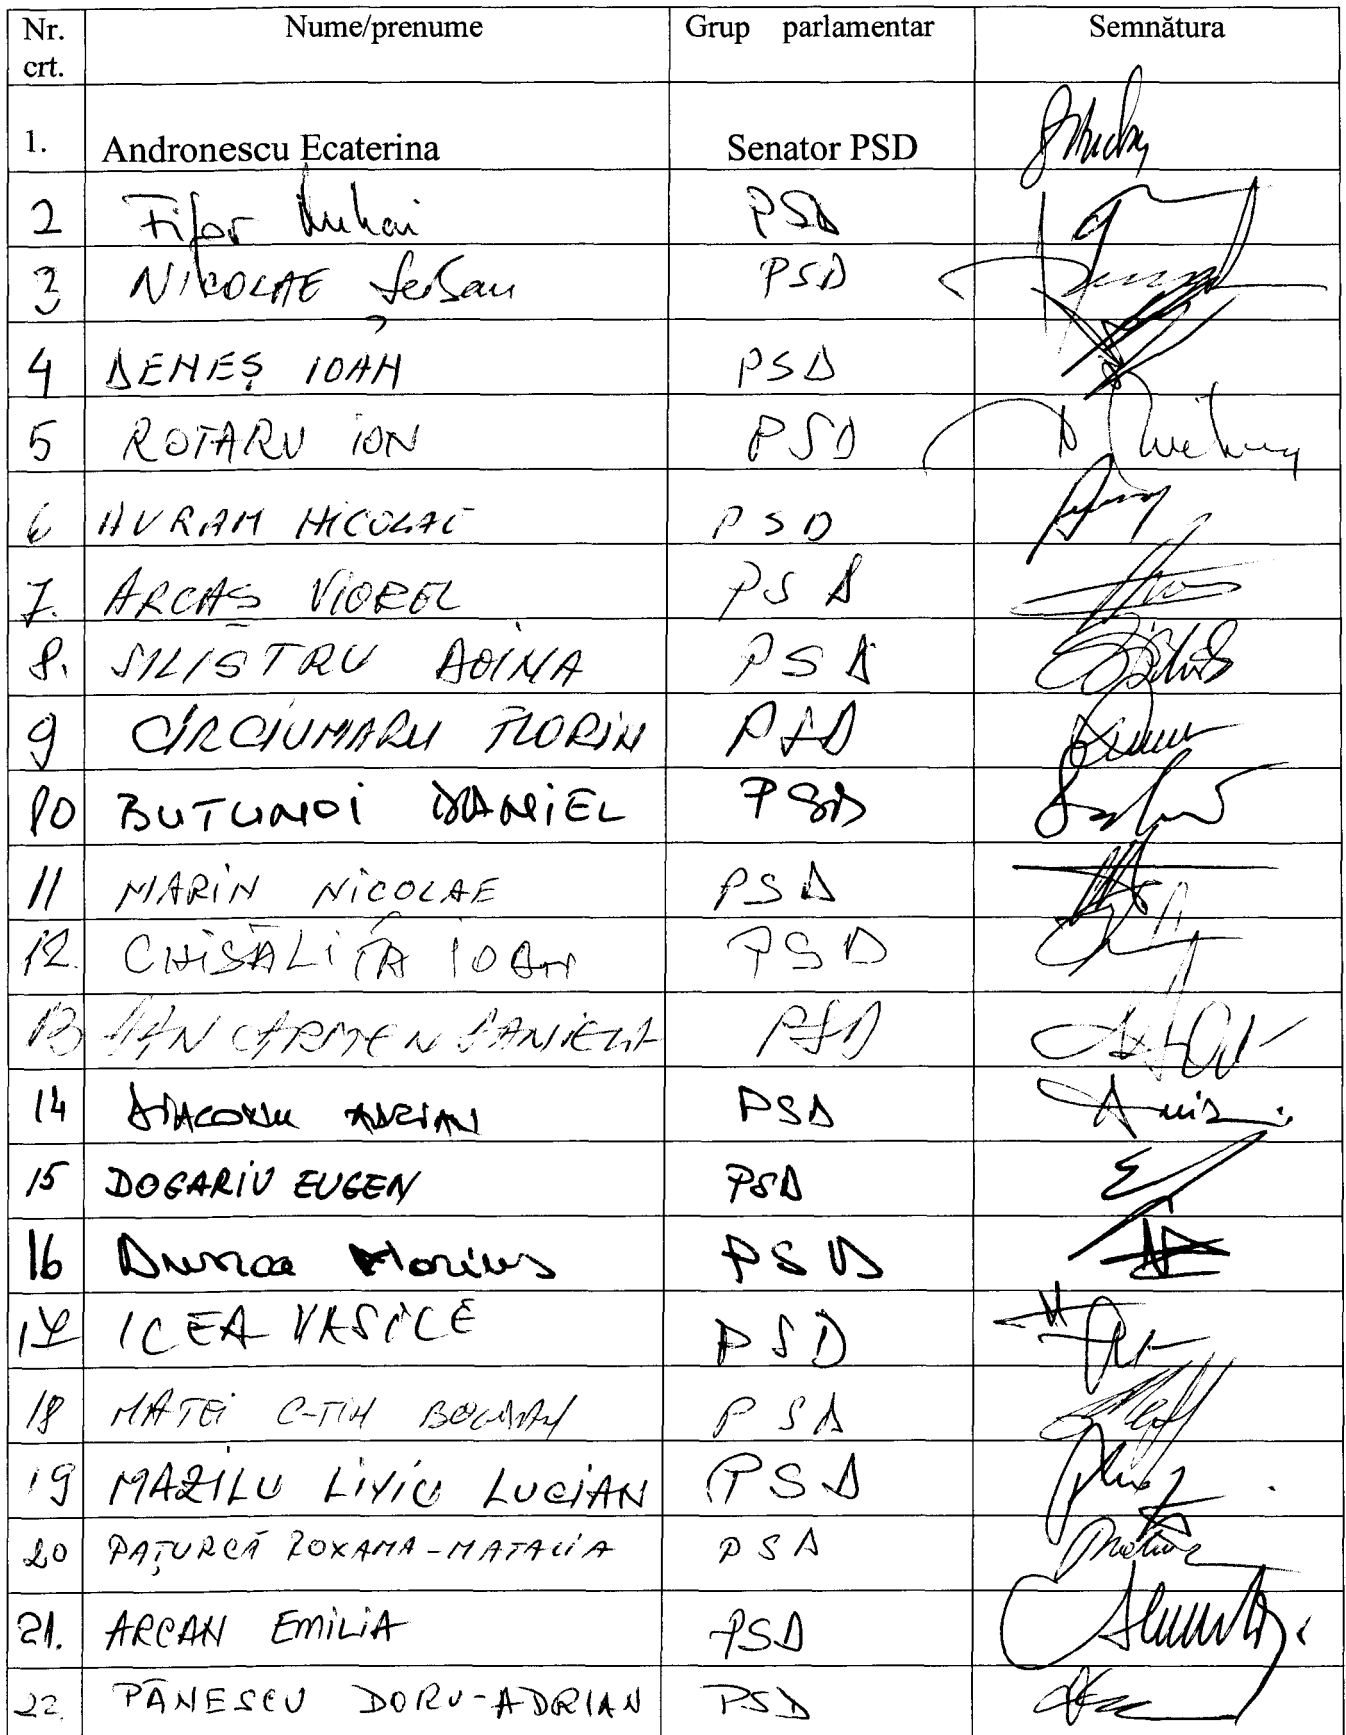 Nr. crt. Nume/prenume Grup parlamentar Semnătura
1. Andronescu Ecaterina Senator PSD
2 Fifor Mihai PSD
3 NICOLAE Șerban PSD
4 DENEȘ IOAN PSD
5 ROTARU ION PSD
6 AVRAM NICOLAE PSD
7. ARCAȘ VIOREL PSD
8. SILISTRU DOINA PSD
9 CÎRCIUMARU FLORIN PSD
10 BUTUNOI DANIEL PSD
11 MARIN NICOLAE PSD
12. CHISĂLIȚĂ IOAN PSD
13 DAN CARMEN DANIELA PSD
14 DIACONU ADRIAN PSD
15 DOGARIU EUGEN PSD
16 Dunca Marius PSD
17 ILEA VASILE PSD
18 MATEI C-TIN BOGDAN PSD
19 MAZILU LIVIU LUCIAN PSD
20 PAȚURCĂ ROXANA-NATALIA PSD
21. ARCAN EMILIA PSD
22. PĂNESCU DORU-ADRIAN PSD